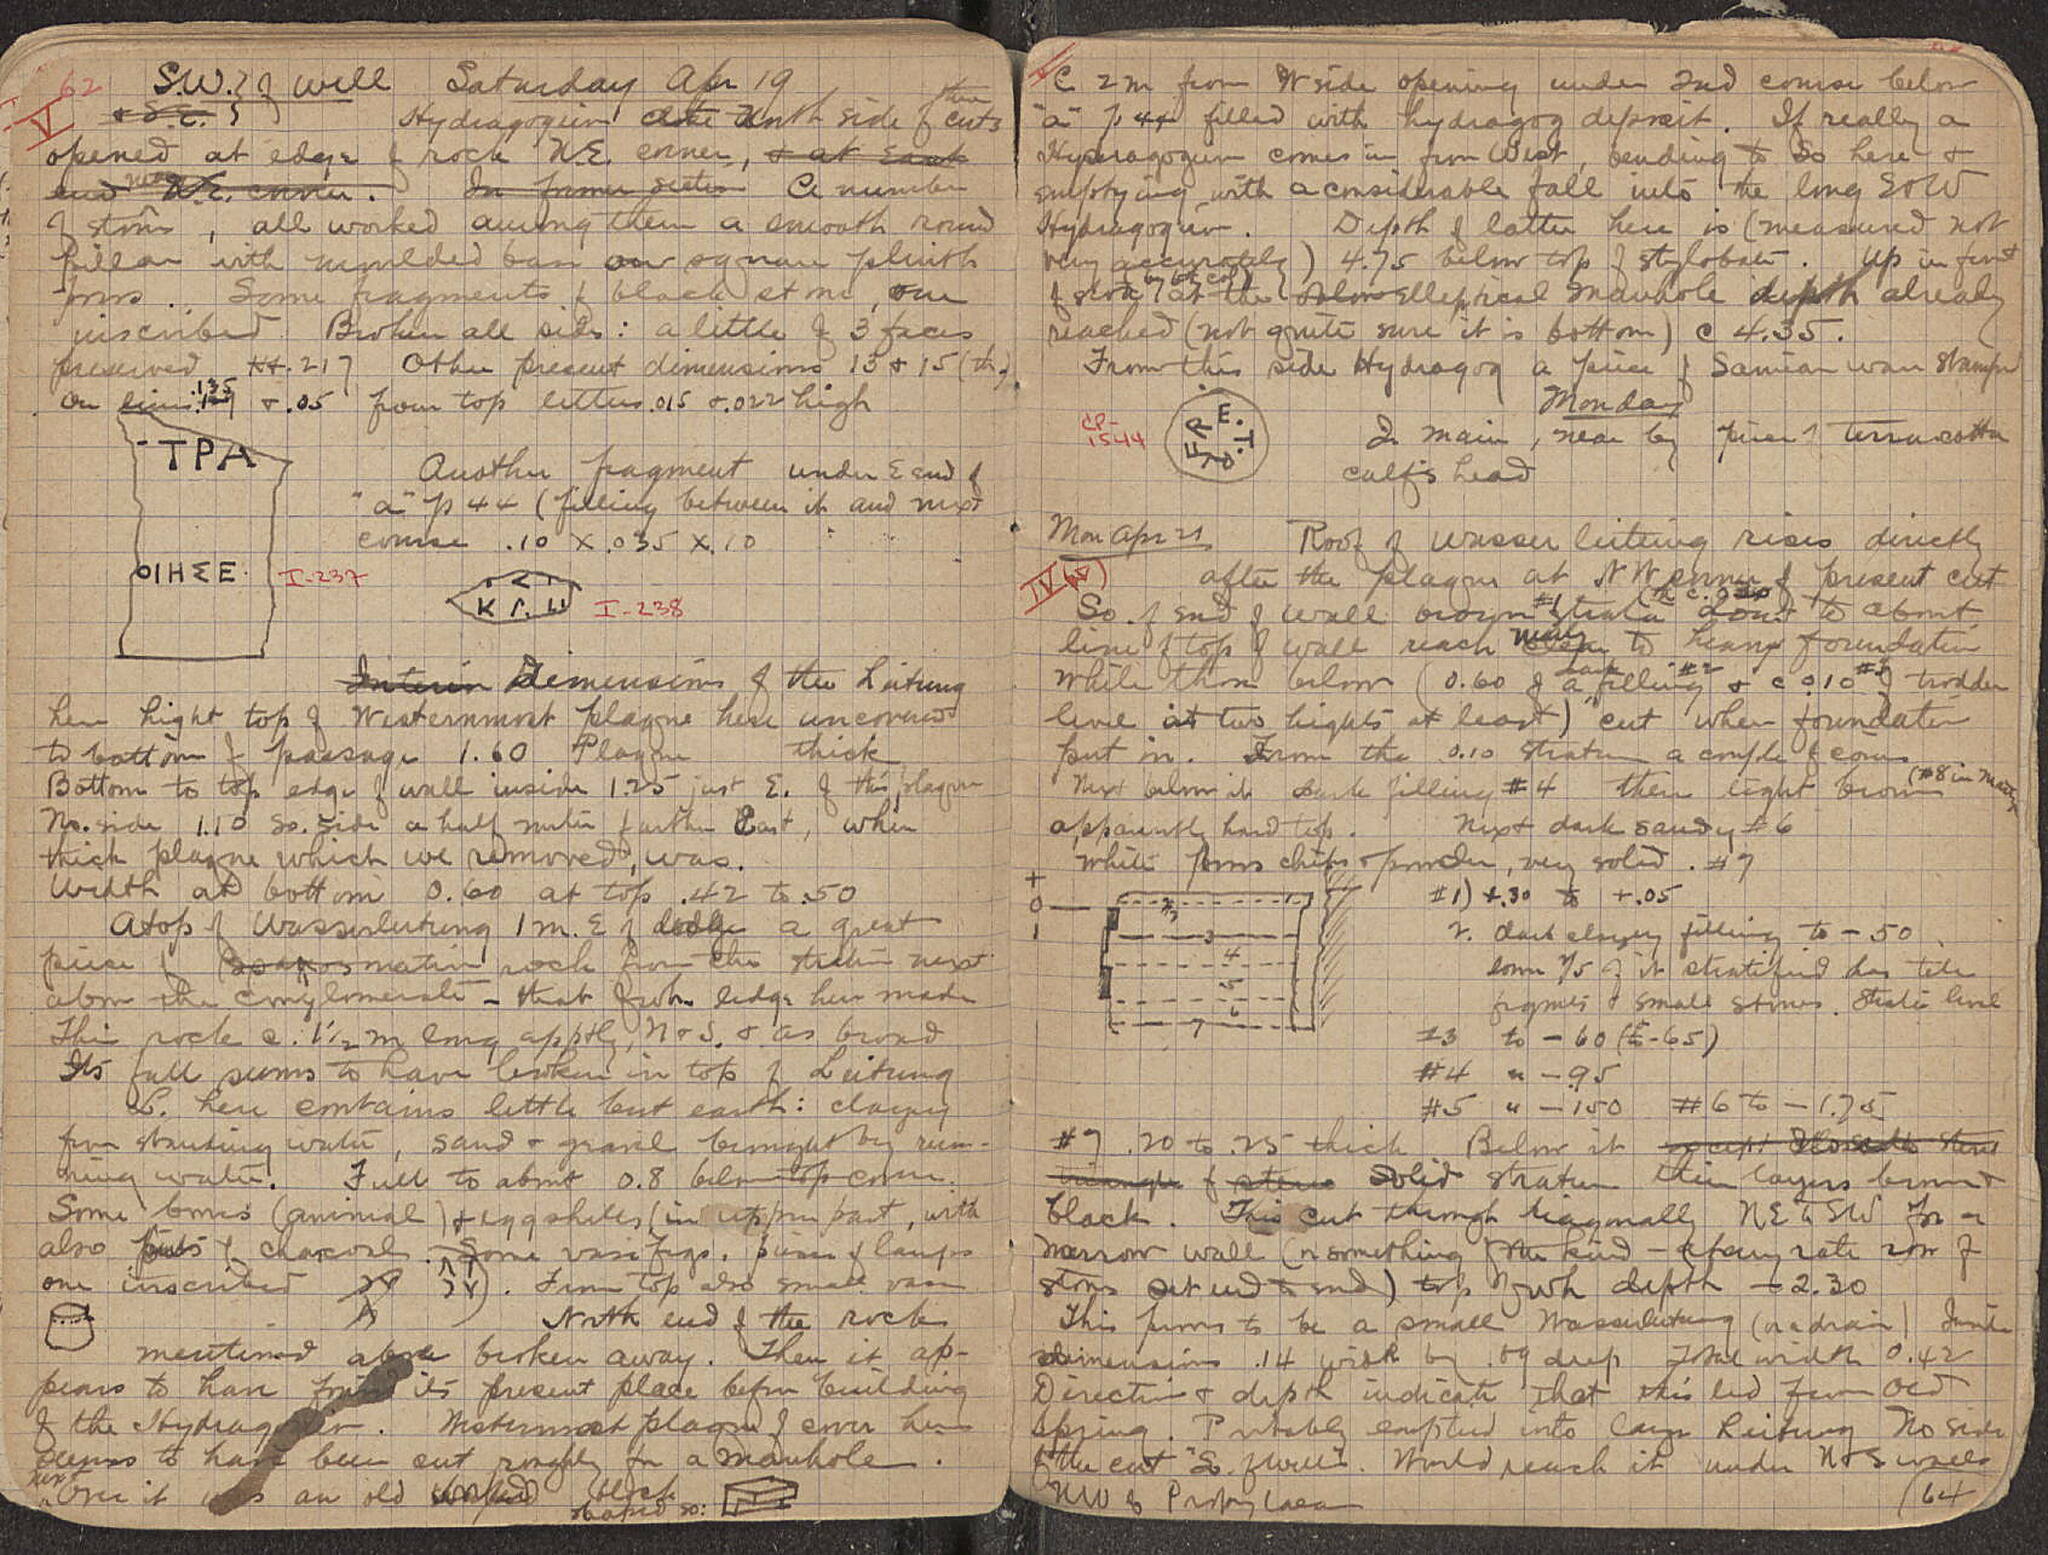 62
V
S.W. } of well Saturday Apr 19
+ S.E. }
Hydragogeion North side of these cuts
opened at edge of rock N.E. corner, + at East
end near N.E. corner. In former section A number
of stones, all worked among them a smooth round
pillar with moulded base on square plinth
Some fragments of black stone, one
inscribed Broken all sides: a little of 3 faces
preserved Ht .217 Other present dimensions 13 + 15 (th.)
On lines .135 + .05 from top letters .015 + .022 high
TPA
OIHΣE
I-237
Another fragment under E end of
"a" p 44 (filling between it and next
course .10 x .035 x .10
I-238
Interior Dimensions of the Leitung
here hight top of Westernmost plaque here uncovered
to bottom of passage 1.60 Plaque thick
Bottom to top edge of wall inside 1.25 just E. of this plaque
No. side 1.10 So. side a half meter farther East, where
thick plaque which we removed, was.
Width at bottom 0.60 at top .42 to .50
Atop of Wasserleitung 1 m. E of a great
piece of rock from the stratum next
above the conglomerate – that of wh. ledge here made
This rock c. 1½ m long apptly, N + S. + as broad
Its fall seems to have broken in top of Leitung
L. here contains little but earth: clayey
from standing water, sand + gravel brought by run-
ning water. Full to about 0.8 below top cover.
Some bones (animal) + eggshells (in upper part, with
also bits of charcoal. Some vase frgs. pieces of lamps
one inscribed From top also small vase
North end of the rock
mentioned above broken away. Then it ap-
pears to have found its present place before building
of the Hydragogeion. Westernmost plaque of cover here
seems to have been cut roughly for a manhole.
next Over it was an old worked block
shaped so:
V
C. 2 m from W side opening under 2nd course below
"a" p 44 filled with hydragog deposit. If really a
Hydragogeion comes in from West, bending to So here +
emptying with a considerable fall into the long
Hydragogeion. Depth of latter here is (measured not
very accurately) 4.75 below top of stylobate. Up in front
of at the elleptical manhole depth already
reached (not quite sure it is bottom) c 4.35.
From this side Hydragog a piece of Samian ware stamped
CP-
1544
Monday
In main, near by piece of terracotta
calf's head
Mon Apr 21 Roof of wasserleitung rises directly
IV after the plaque at NW corner of present cut
So. of end of wall brown #1 strata down to about
line of top of wall reach nearly to heavy foundation
While those below (0.60 of a dark filling #2 + c 0.10 #3 of trodden
level at two hights at least) cut when foundation
put in. From the 0.10 stratum a couple of coins
Next below it dark filling #4 then light brown
apparently hard top. Next dark sandy #6
White poros chips + powder, very solid. #7
+
0
1
3
4
5
6
7
#1) +.30 to +.05
2. dark clayey filling to – 50
lower ⅖ of it stratified has tile
frgmts + small stones.
#3 to – 60 (to -65)
#4 " – 95
#5 " – 150 #6 to – 1.75
#7 .20 to .25 thick Below it
of solid stratum thin layers brown +
black. This cut through diagonally NE to SW for a
narrow wall (or something of the kind – at any rate row of
stones set end to end) top of wh depth – 2.30
This proves to be a small Wasserleitung (or a drain) Inside
dimensions .14 wide by .09 deep Total width 0.42
Direction + depth indicate that this led from Old
Spring. Probably emptied into large Leitung No side
of the cut "S. of well". Would reach it under N + S walls
NW of Propylaea
(64